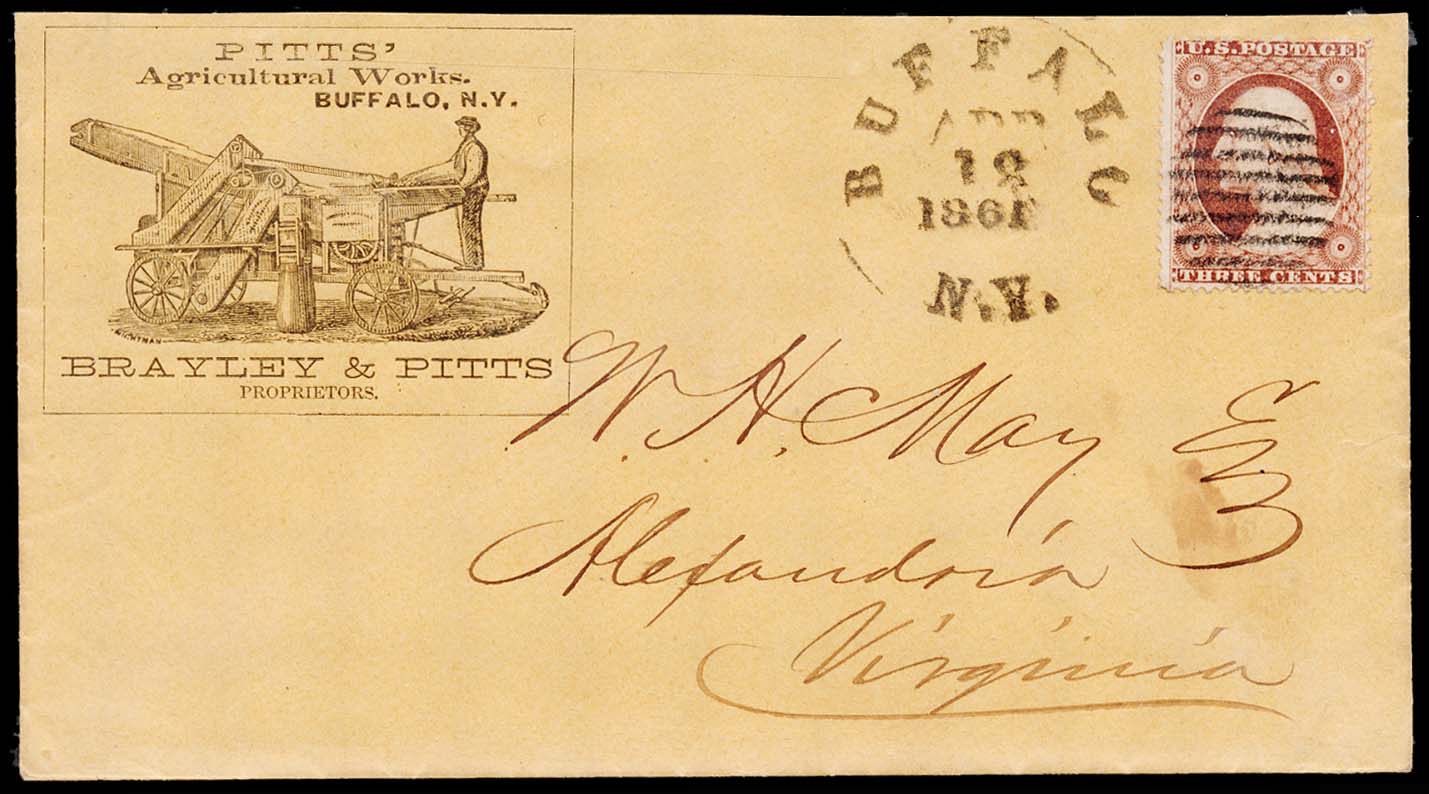 PITTS'
Agricultural Works.
BUFFALO, N.Y.
BRAYLEY & PITTS
PROPRIETORS.
BUFFALO
APR
1861
N.Y.
U.S. POSTAGE
THREE CENTS
W. H. May Esq
Alexandria
Virginia